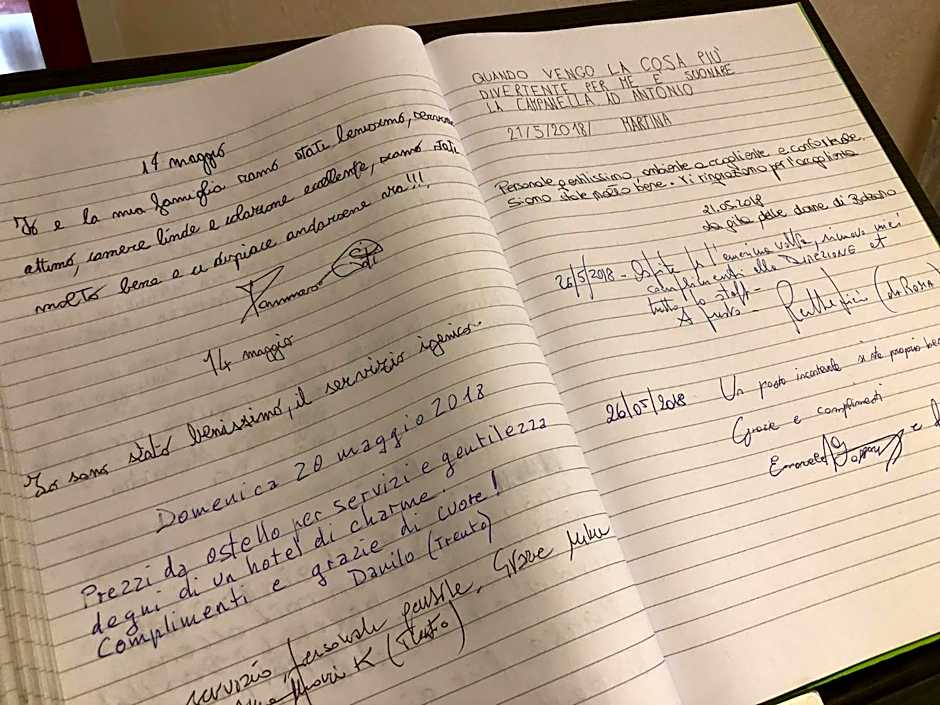 14 maggio
Io e la mia famiglia siamo stati benissimo, servizio
ottimo, camere linde e colazione eccellente, siamo stati
molto bene e ci dispiace andarcene via!!!
14 maggio
Io sono stato benissimo, il servizio igenico
Domenica 20 maggio 2018
Prezzi da ostello per servizi e gentilezza
degni di un hotel di charme.
Complimenti e grazie di cuore!
Danilo (Trento)
servizio, personale Grazie
K (Trento)
QUANDO VENGO LA COSA PIU'
DIVERTENTE PER ME È SUONARE
LA CAMPANELLA AD ANTONIO
21/5/2018/ MARTINA
Personale gentilissimo, ambiente accogliente e confortevole.
Siamo state molto bene. Vi ringraziamo per l'accoglienza
21.05.2018
la gita delle donne di Bolzano
26/5/2018 - Ospite per l'ennesima volta, rinnovo i miei
complimenti alla DIREZIONE et
tutto lo staff -
A presto -
26/05/2018 Un posto incantevole si sta proprio bene
Grazie e complimenti